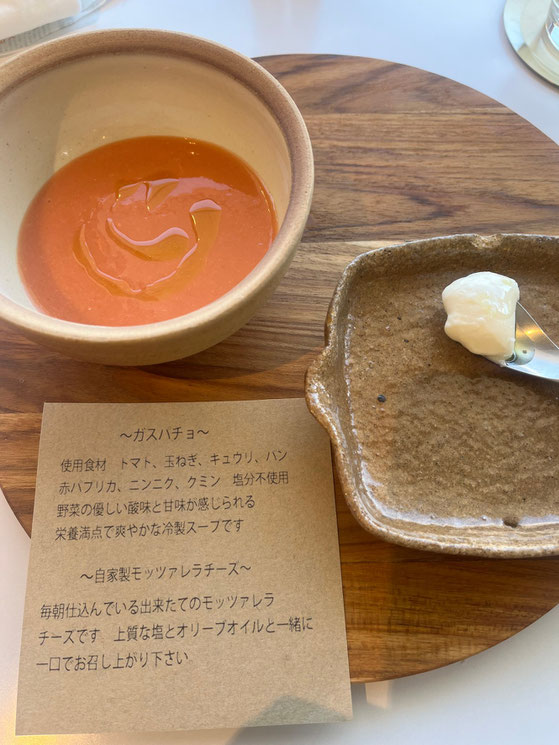 ～ガスパチョ～
使用食材　トマト、玉ねぎ、キュウリ、パン
赤パプリカ、ニンニク、クミン　塩分不使用
野菜の優しい酸味と甘味が感じられる
栄養満点で爽やかな冷製スープです
～自家製モッツァレラチーズ～
毎朝仕込んでいる出来たてのモッツァレラ
チーズです　上質な塩とオリーブオイルと一緒に
一口でお召し上がり下さい